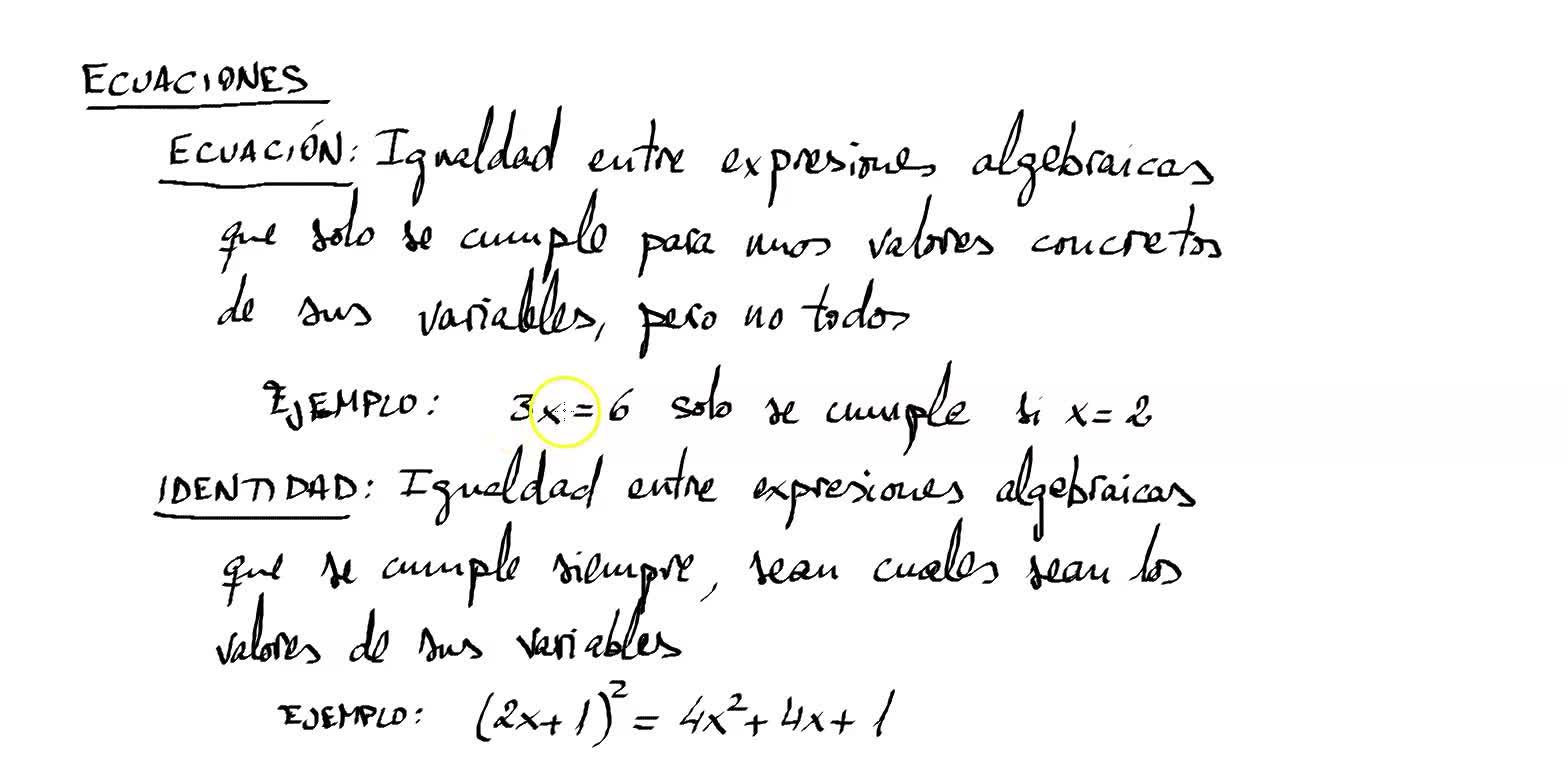 ECUACIONES
ECUACIÓN: Igualdad entre expresiones algebraicas
que solo se cumple para unos valores concretos
de sus variables, pero no todos
EJEMPLO: 3x = 6 solo se cumple si x = 2
IDENTIDAD: Igualdad entre expresiones algebraicas
que se cumple siempre, sean cuales sean los
valores de sus variables
EJEMPLO: (2x+1)² = 4x² + 4x + 1